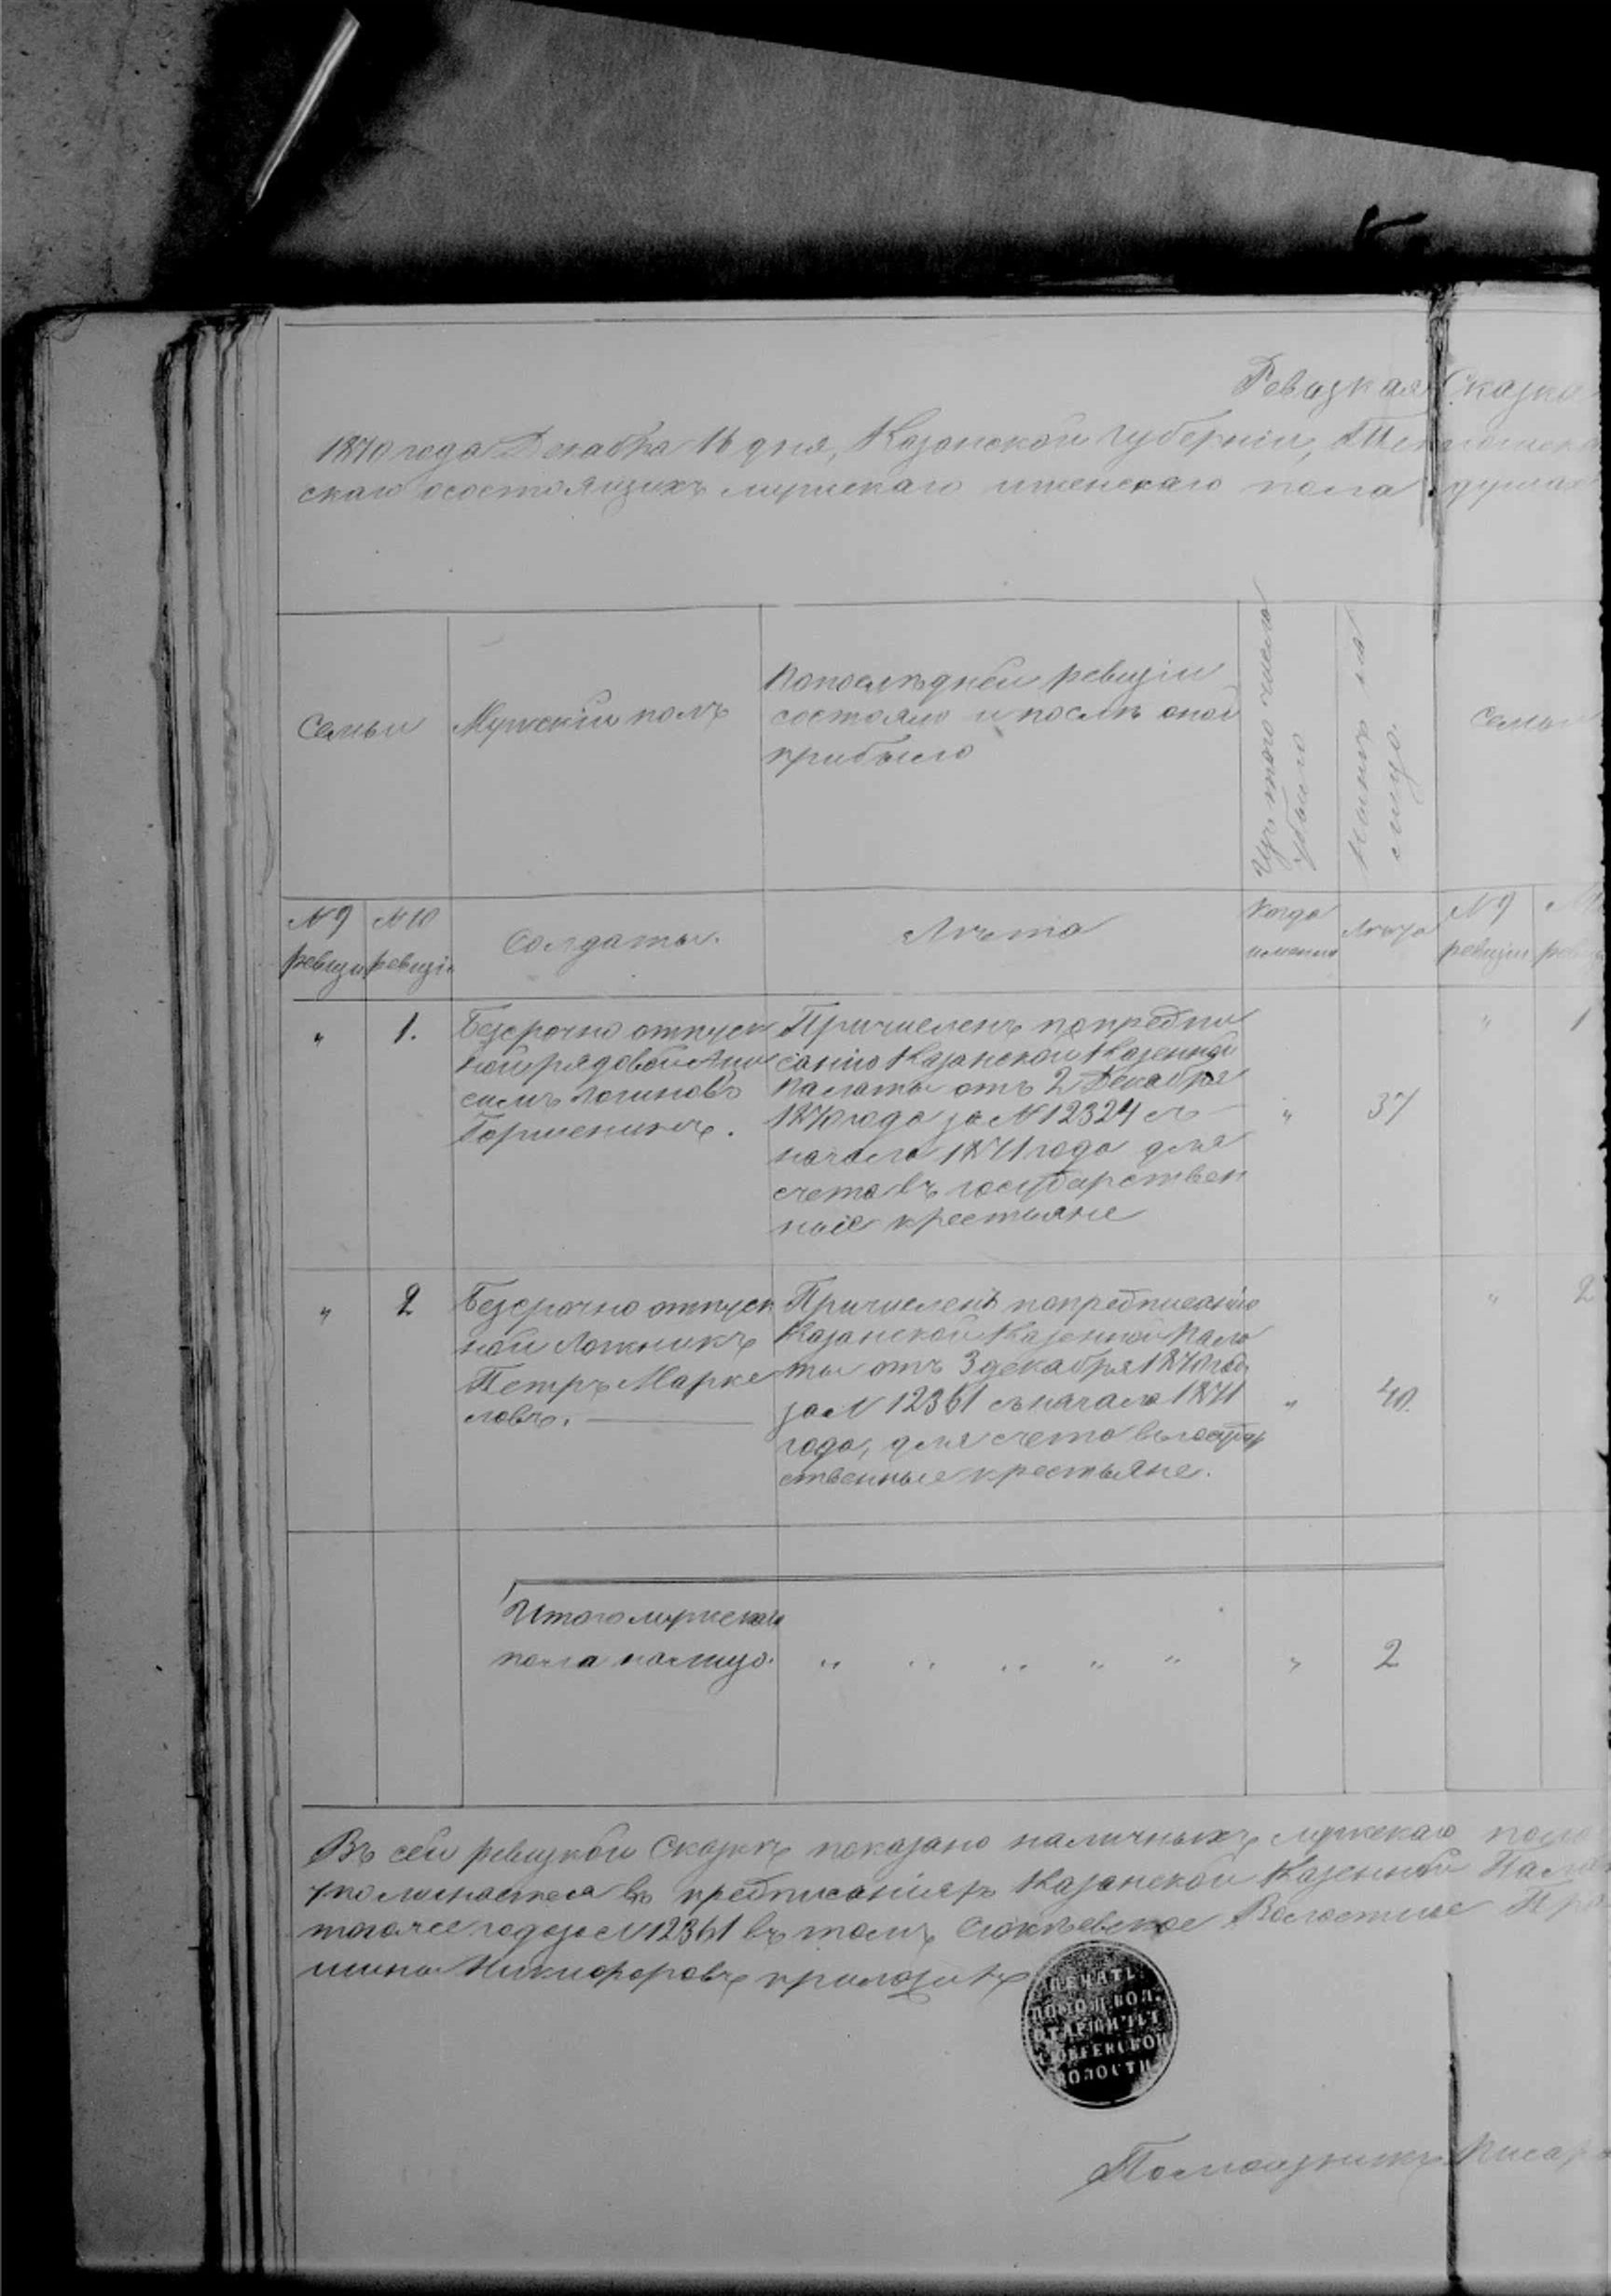 Ревизкая Сказка
1870 года Декабря 16 дня, Казанской Губерніи,
скаго осостоящихъ мужскаго иженскаго пола душах
Семьи
Мужскій полъ
Попослѣдней ревизіи
состояло ипослѣ оной
прибыло
Изъ того числа
убыло
Нынѣ на
лицо.
Семьи
№ 9
ревизіи
№ 10
ревизіи
Солдаты.
Лѣта
Когда
именно
Лѣта
№ 9
ревизіи
„ 1.
Безсрочно отпуск
ной рядовой Ани
симъ Логиновъ
Горшенинъ.
Причисленъ попредпи
санію Казанской Казенной
Палаты отъ 2 Декабря
1870 года за № 12324 съ
начала 1871 года для
счета въ государствен
ные крестьяне
„ 37
„ 1
„ 2
Безсрочно отпуск
ной Ложникъ
Петръ Марке
ловъ.
Причисленъ попредписанію
Казанской Казенной Пала
ты отъ 3 декабря 1870 года
за № 12361 съ начала 1871
года, для счета въ государ
ственные крестьяне.
„ 40.
„ 2
Итого мужскаго
пола налицо. „ „ „ „ „ „ 2
Въ сей ревизкой Сказкѣ показано наличныхъ мужскаго пола
въ предписаніяхъ Казанской Казенной Пала
тогоже года за № 12361 въ томъ Сюкѣевское Волостное Пра
шины Никифоровъ приложилъ
ПЕЧАТЬ
ПОМОЩ. ВОЛ.
СТАРШИНЫ
СЮКѢЕВСКОЙ
ВОЛОСТИ
Помощникъ Писаря